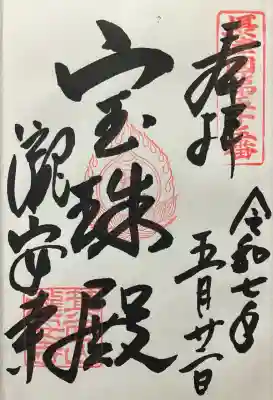 奉拝
令和七年
五月廿二日
宝珠殿
瀧安寺